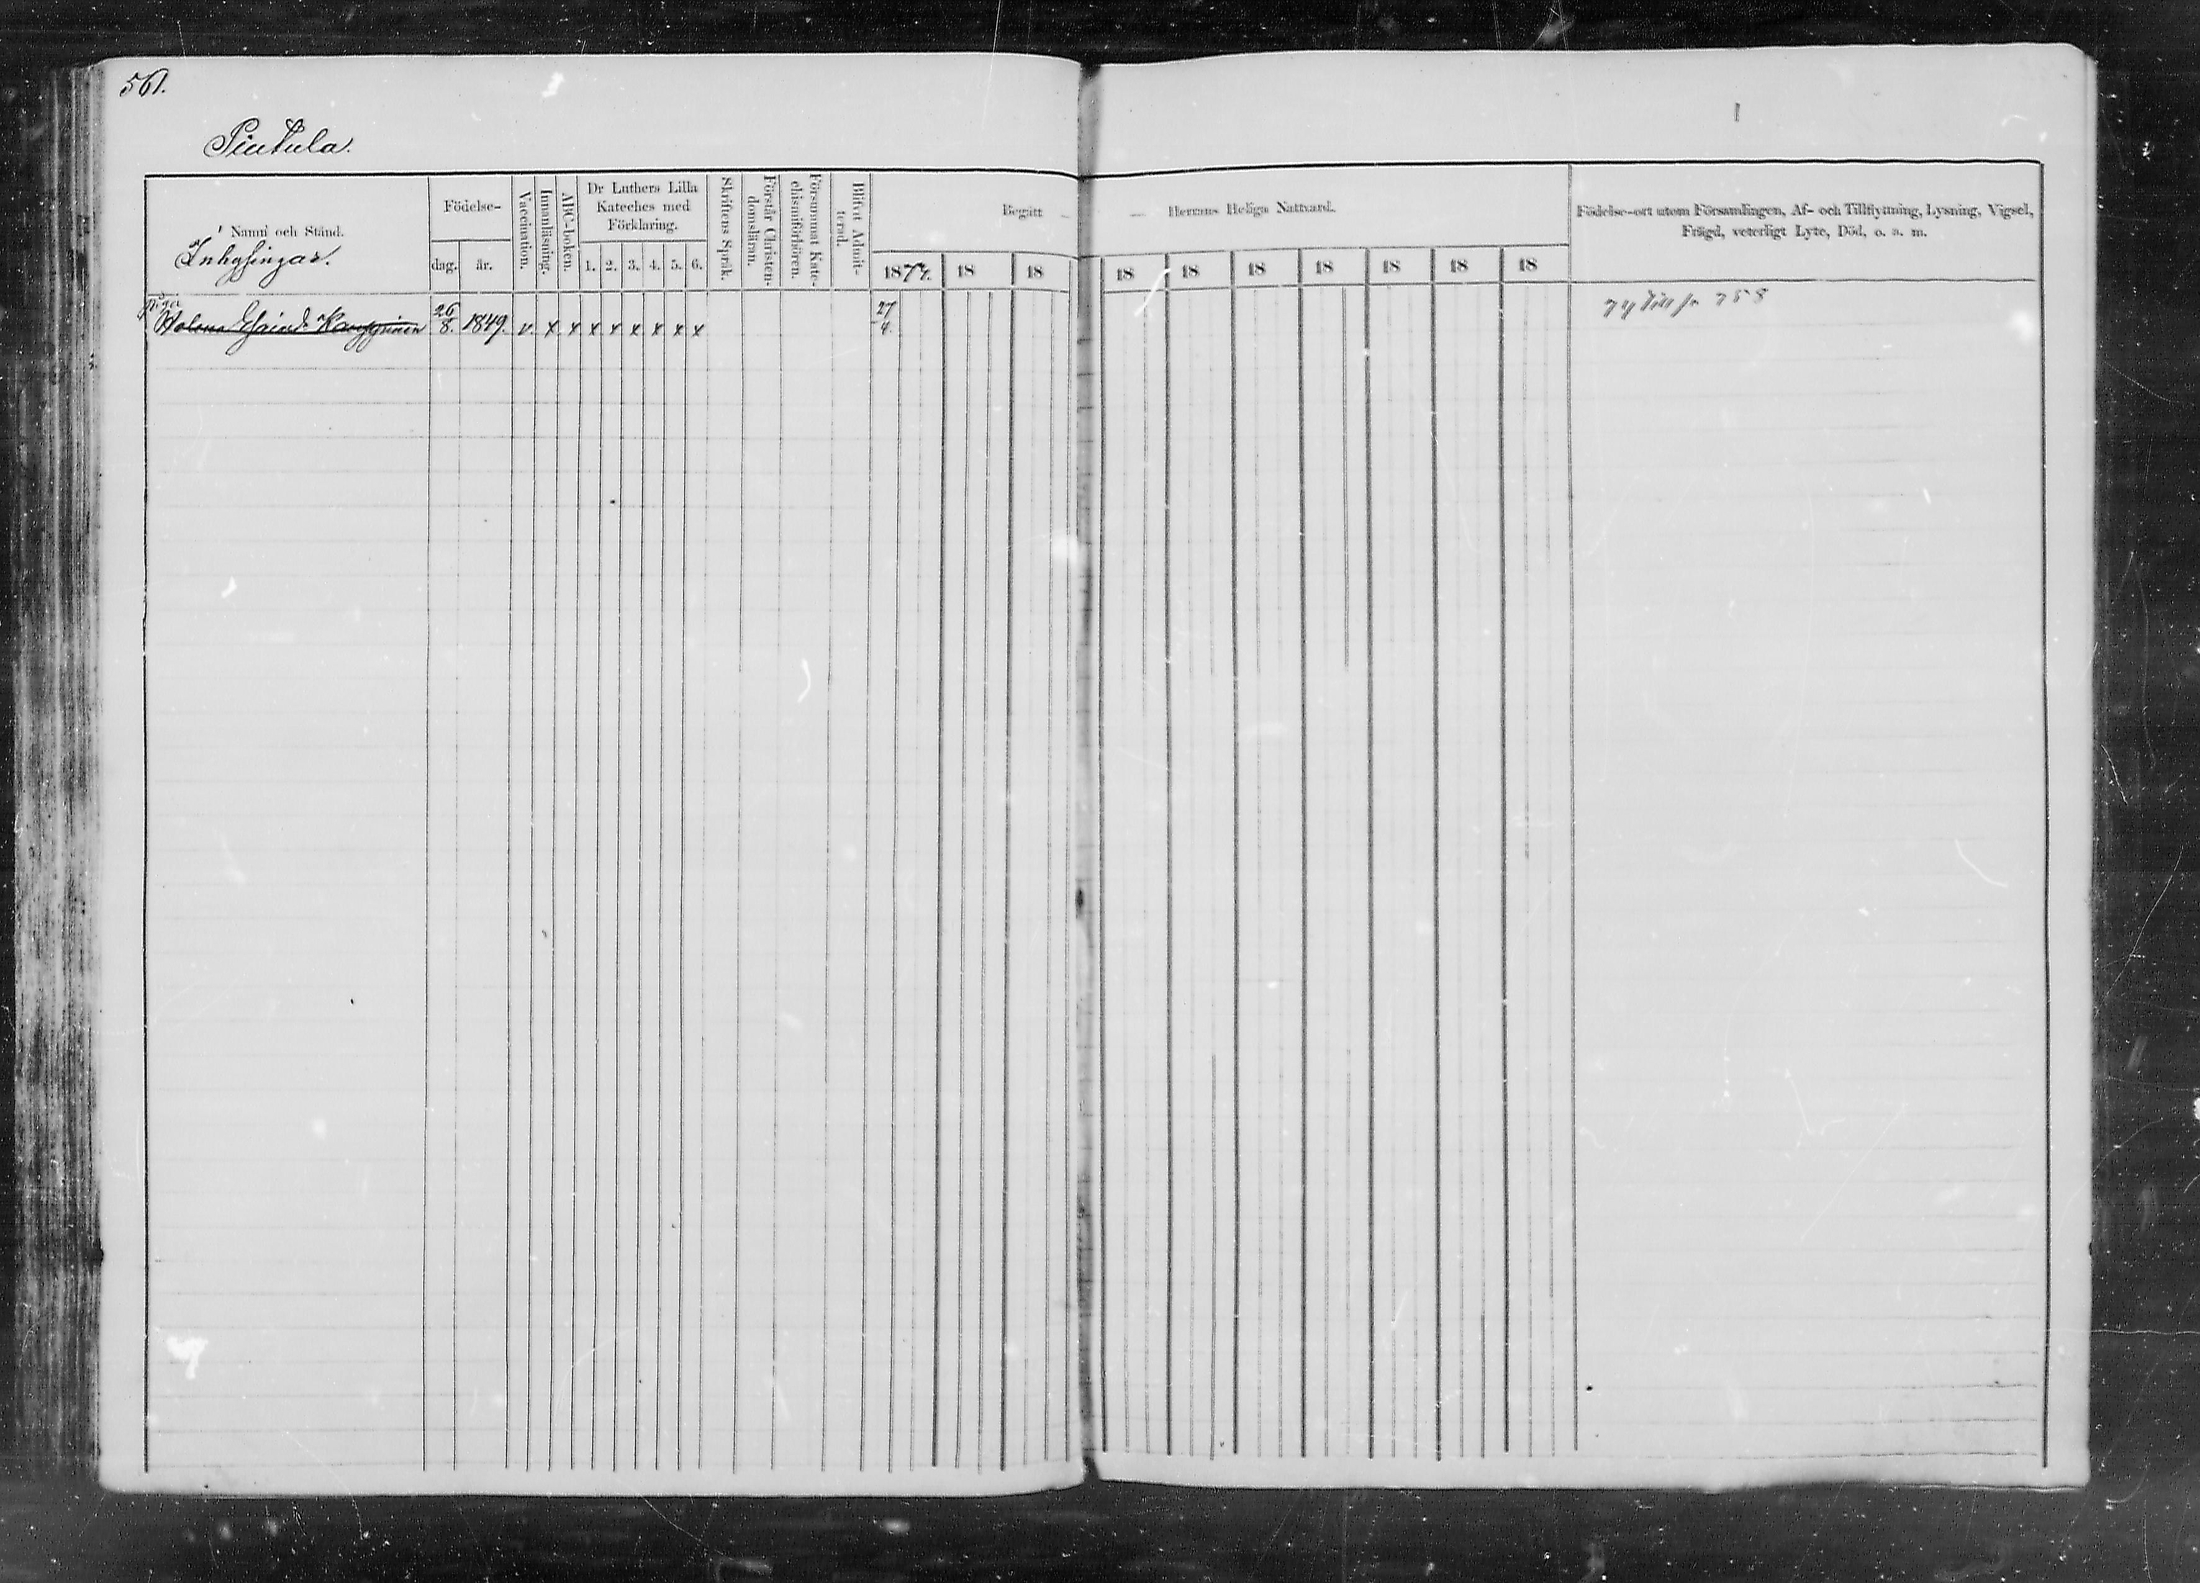 561.
Piutula.
Namn och Stånd.
Inhysingar.
Födelse-
dag. år.
Vaccination.
Innanläsning.
ABC-boken.
Dr Luthers Lilla
Kateches med
Förklaring.
1. 2. 3. 4. 5. 6.
Skriftens Språk.
Förstår Christen-
domsläran.
Försummat Kate-
chismiförhören.
Blifvit Admit-
terad.
Begått — — Herrans Heliga Nattvard.
1874. 18 18 18 18 18 18 18 18 18
Födelse-ort utom Församlingen, Af- och Tillflyttning, Lysning, Vigsel,
Frägd, veterligt Lyte, Död, o. s. m.
pigan
Helena Esaiad: 26/8. 1849. v x x x x x x x x 27/4. 74 till p. 758